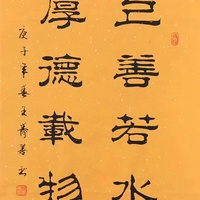 上善若水
厚德載物
庚子年春王善书